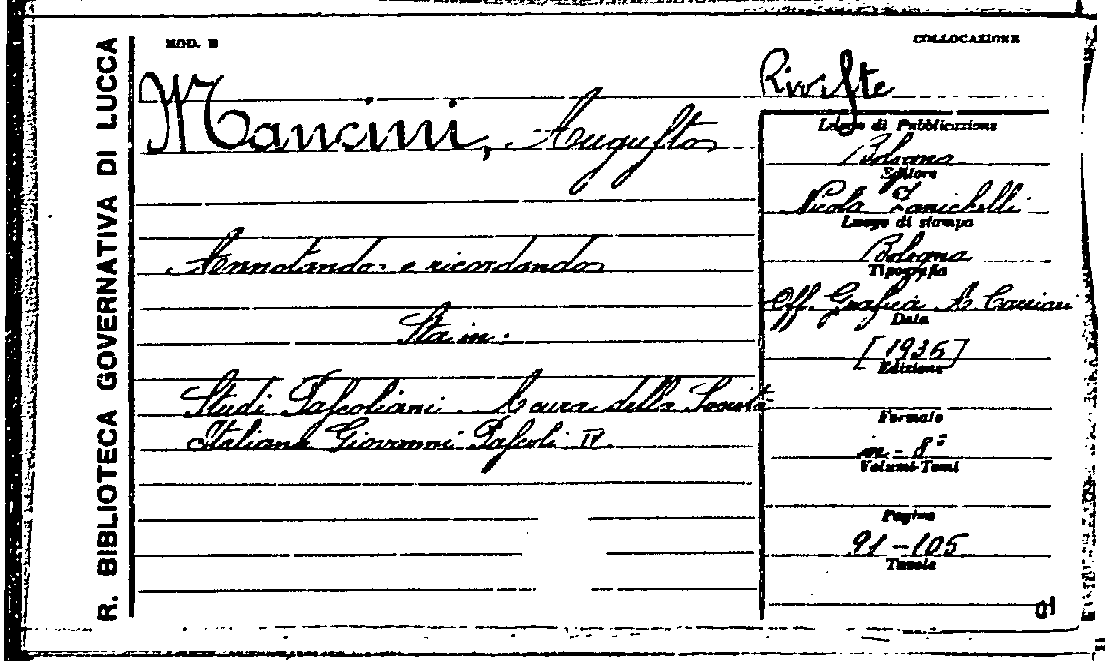 R. BIBLIOTECA GOVERNATIVA DI LUCCA
MOD. B
COLLOCAZIONE
Riviste
Mancini, Augusto
Annotando e ricordando
Sta in:
Studi Pascoliani. A cura della Società
Italiana Giovanni Pascoli IV.
Luogo di Pubblicazione
Bologna
Editore
Nicola Zanichelli
Luogo di stampa
Bologna
Tipografia
Off. Grafica A. Cacciari
Data
[1935]
Edizione
Formato
in-8°
Volumi-Tomi
Pagine
91-105
Tavole